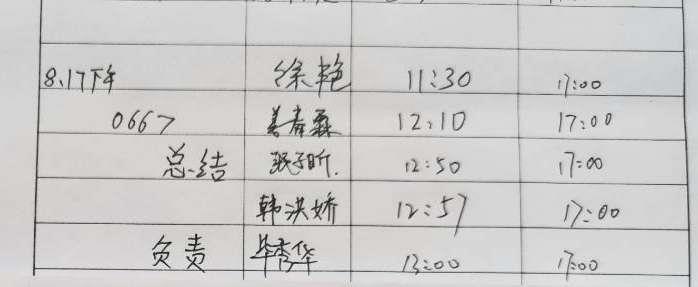 8.17下午 徐艳 11:30 17:00
0667 姜春霖 12:10 17:00
总结 张子昕. 12:50 17:00
韩洪娇 12:57 17:00
负责 毕秀华 13:00 17:00